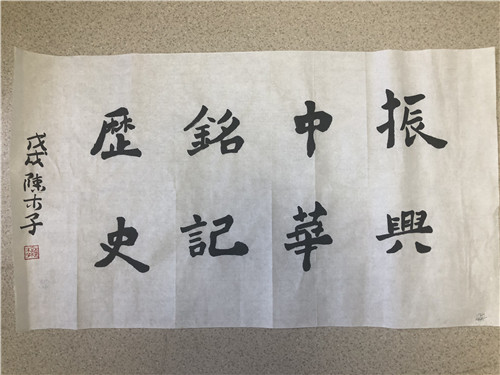 振興
中華
銘記
歷史
戊戌陳木子